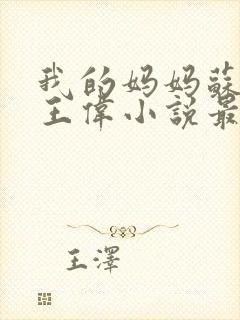 我的妈妈蘇
王偉小説最
王澤